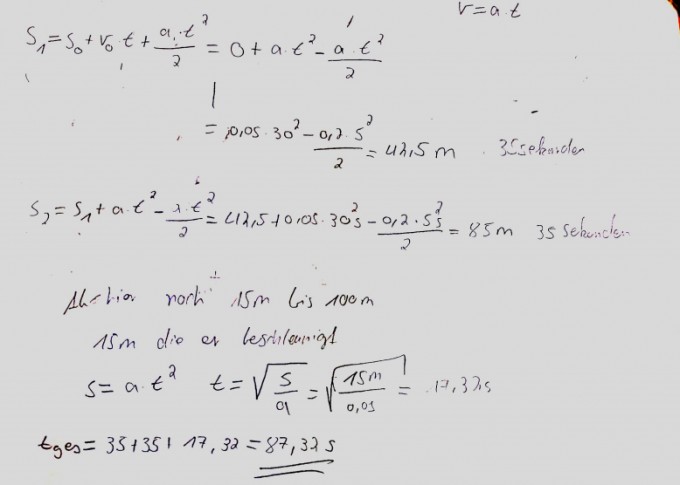 v=a·t
S₁=S₀+v₀·t+a·t²/2=0+a·t²-a·t²/2
=0,05·30²-0,2·5²/2=42,5m 35sekunden
S₂=S₁+a·t²-a·t²/2=42,5+0,05·30²s-0,2·5²s/2=85m 35 Sekunden
Ab hier noch 15m bis 100m
15m die er beschleunigt
s=a·t² t=√s/a=√15m/0,05=17,32s
tges=35+35+17,32=87,32s